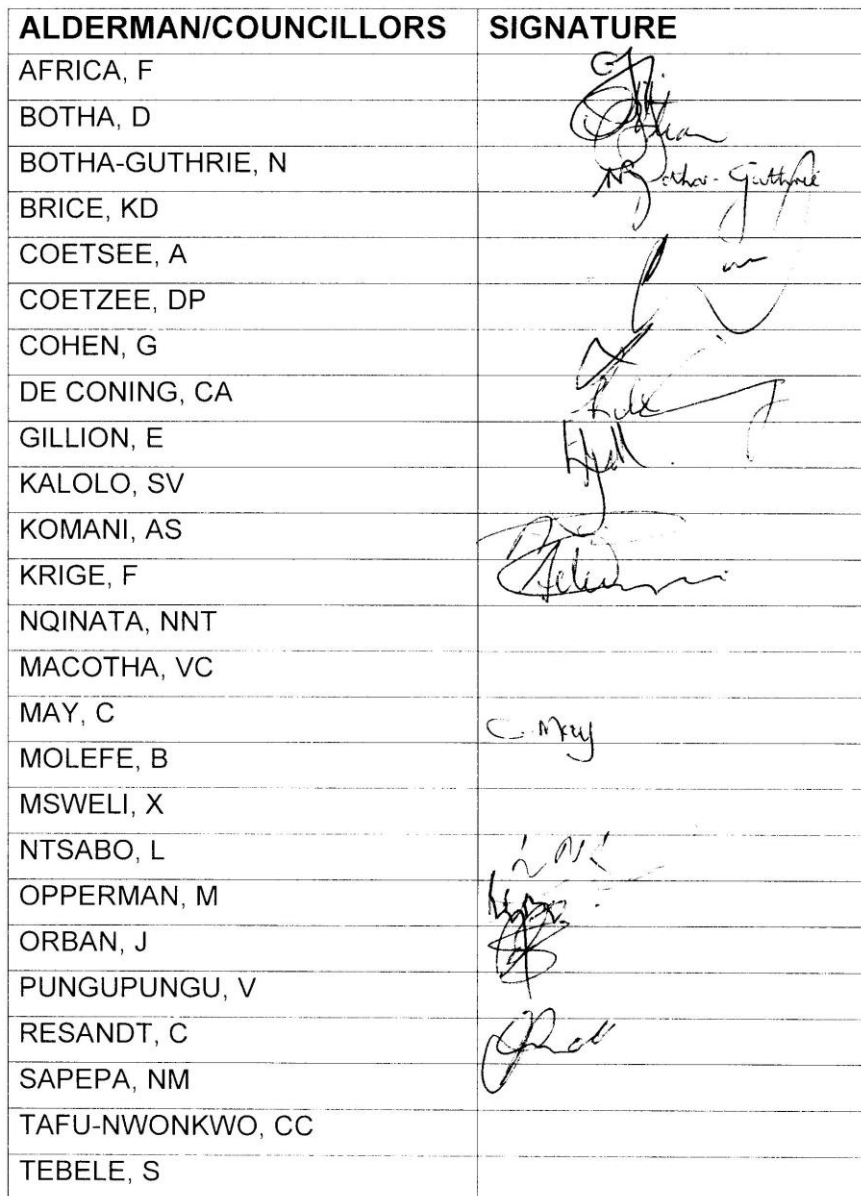 ALDERMAN/COUNCILLORS SIGNATURE
AFRICA, F
BOTHA, D
BOTHA-GUTHRIE, N Guthrie
BRICE, KD
COETSEE, A
COETZEE, DP
COHEN, G
DE CONING, CA
GILLION, E
KALOLO, SV
KOMANI, AS
KRIGE, F
NQINATA, NNT
MACOTHA, VC
MAY, C C. May
MOLEFE, B
MSWELI, X
NTSABO, L
OPPERMAN, M
ORBAN, J
PUNGUPUNGU, V
RESANDT, C
SAPEPA, NM
TAFU-NWONKWO, CC
TEBELE, S